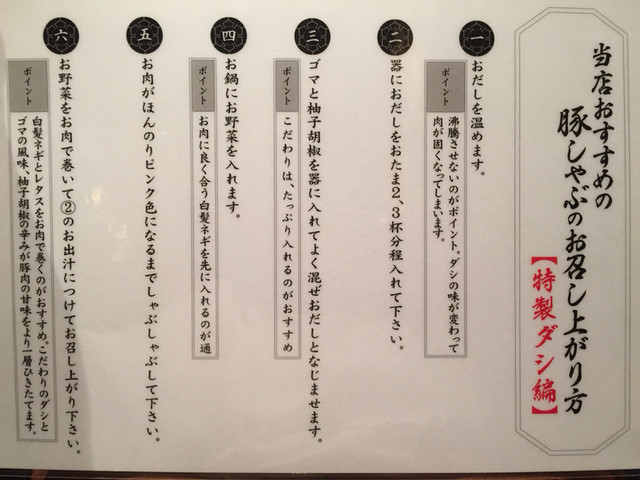 当店おすすめの
豚しゃぶのお召し上がり方
【特製ダシ編】
一
おだしを温めます。
ポイント
沸騰させないのがポイント。ダシの味が変わって
肉が固くなってしまいます。
二
器におだしをおたま2、3杯分程入れて下さい。
三
ゴマと柚子胡椒を器に入れてよく混ぜおだしとなじませます。
ポイント
こだわりは、たっぷり入れるのがおすすめ
四
お鍋にお野菜を入れます。
ポイント
お肉に良く合う白髪ネギを先に入れるのが通
五
お肉がほんのりピンク色になるまでしゃぶしゃぶして下さい。
六
お野菜をお肉で巻いて②のお出汁につけてお召し上がり下さい。
ポイント
白髪ネギとレタスをお肉で巻くのがおすすめ。こだわりのダシと
ゴマの風味、柚子胡椒の辛みが豚肉の甘味をより一層ひきたてます。